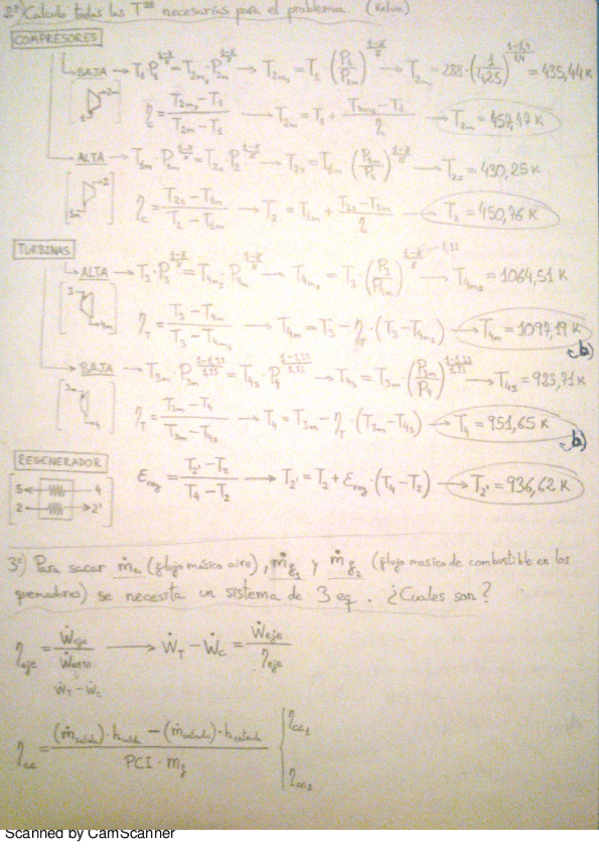 2º) Calculo todas las Tªˢ necesarias para el problema (Kelvin)
COMPRESORES
BAJA → T₁·P₁^((1-γ)/γ) = T₂ₘₛ·P₂ₘ^((1-γ)/γ) → T₂ₘₛ = T₁ (P₁/P₂ₘ)^((1-γ)/γ) → T₂ₘₛ = 288·(1/4,25)^((1-1,4)/1,4) = 435,44 K
η_c = (T₂ₘₛ - T₁)/(T₂ₘ - T₁) → T₂ₘ = T₁ + (T₂ₘₛ - T₁)/η_c → T₂ₘ = 457,17 K
ALTA → T₁ₘ·P₁ₘ^((1-γ)/γ) = T₂ₛ·P₂^((1-γ)/γ) → T₂ₛ = T₁ₘ (P₁ₘ/P₂)^((1-γ)/γ) → T₂ₛ = 430,25 K
η_c = (T₂ₛ - T₁ₘ)/(T₂ - T₁ₘ) → T₂ = T₁ₘ + (T₂ₛ - T₁ₘ)/η → T₂ = 450,76 K
TURBINAS
1,33
ALTA → T₃·P₃^((1-γ)/γ) = T₄ₘₛ·P₄ₘ^((1-γ)/γ) → T₄ₘₛ = T₃·(P₃/P₄ₘ)^((1-γ)/γ) → T₄ₘₛ = 1064,51 K
η_T = (T₃ - T₄ₘ)/(T₃ - T₄ₘₛ) → T₄ₘ = T₃ - η_T·(T₃ - T₄ₘₛ) → T₄ₘ = 1097,19 K
b)
BAJA → T₃ₘ·P₃ₘ^((1-1,33)/1,33) = T₄ₛ·P₄^((1-1,33)/1,33) → T₄ₛ = T₃ₘ·(P₃ₘ/P₄)^((1-1,33)/1,33) → T₄ₛ = 923,71 K
η_T = (T₃ₘ - T₄)/(T₃ₘ - T₄ₛ) → T₄ = T₃ₘ - η_T·(T₃ₘ - T₄ₛ) → T₄ = 951,65 K
b)
REGENERADOR
5 4
2 2'
ε_reg = (T₂' - T₂)/(T₄ - T₂) → T₂' = T₂ + ε_reg·(T₄ - T₂) → T₂' = 936,62 K
3º) Para sacar ṁₐ (flujo másico aire), ṁ_f₁ y ṁ_f₂ (flujo masico de combustible en los
quemadores) se necesita un sistema de 3 eq. ¿Cuales son?
η_eje = Ẇeje/Ẇneto → Ẇ_T - Ẇ_C = Ẇeje/η_eje
Ẇ_T - Ẇ_C
η_cc = ((ṁ_salida)·h_salida - (ṁ_entrada)·h_entrada)/(PCI·m_f) { η_cc₁
η_cc₂
Scanned by CamScanner